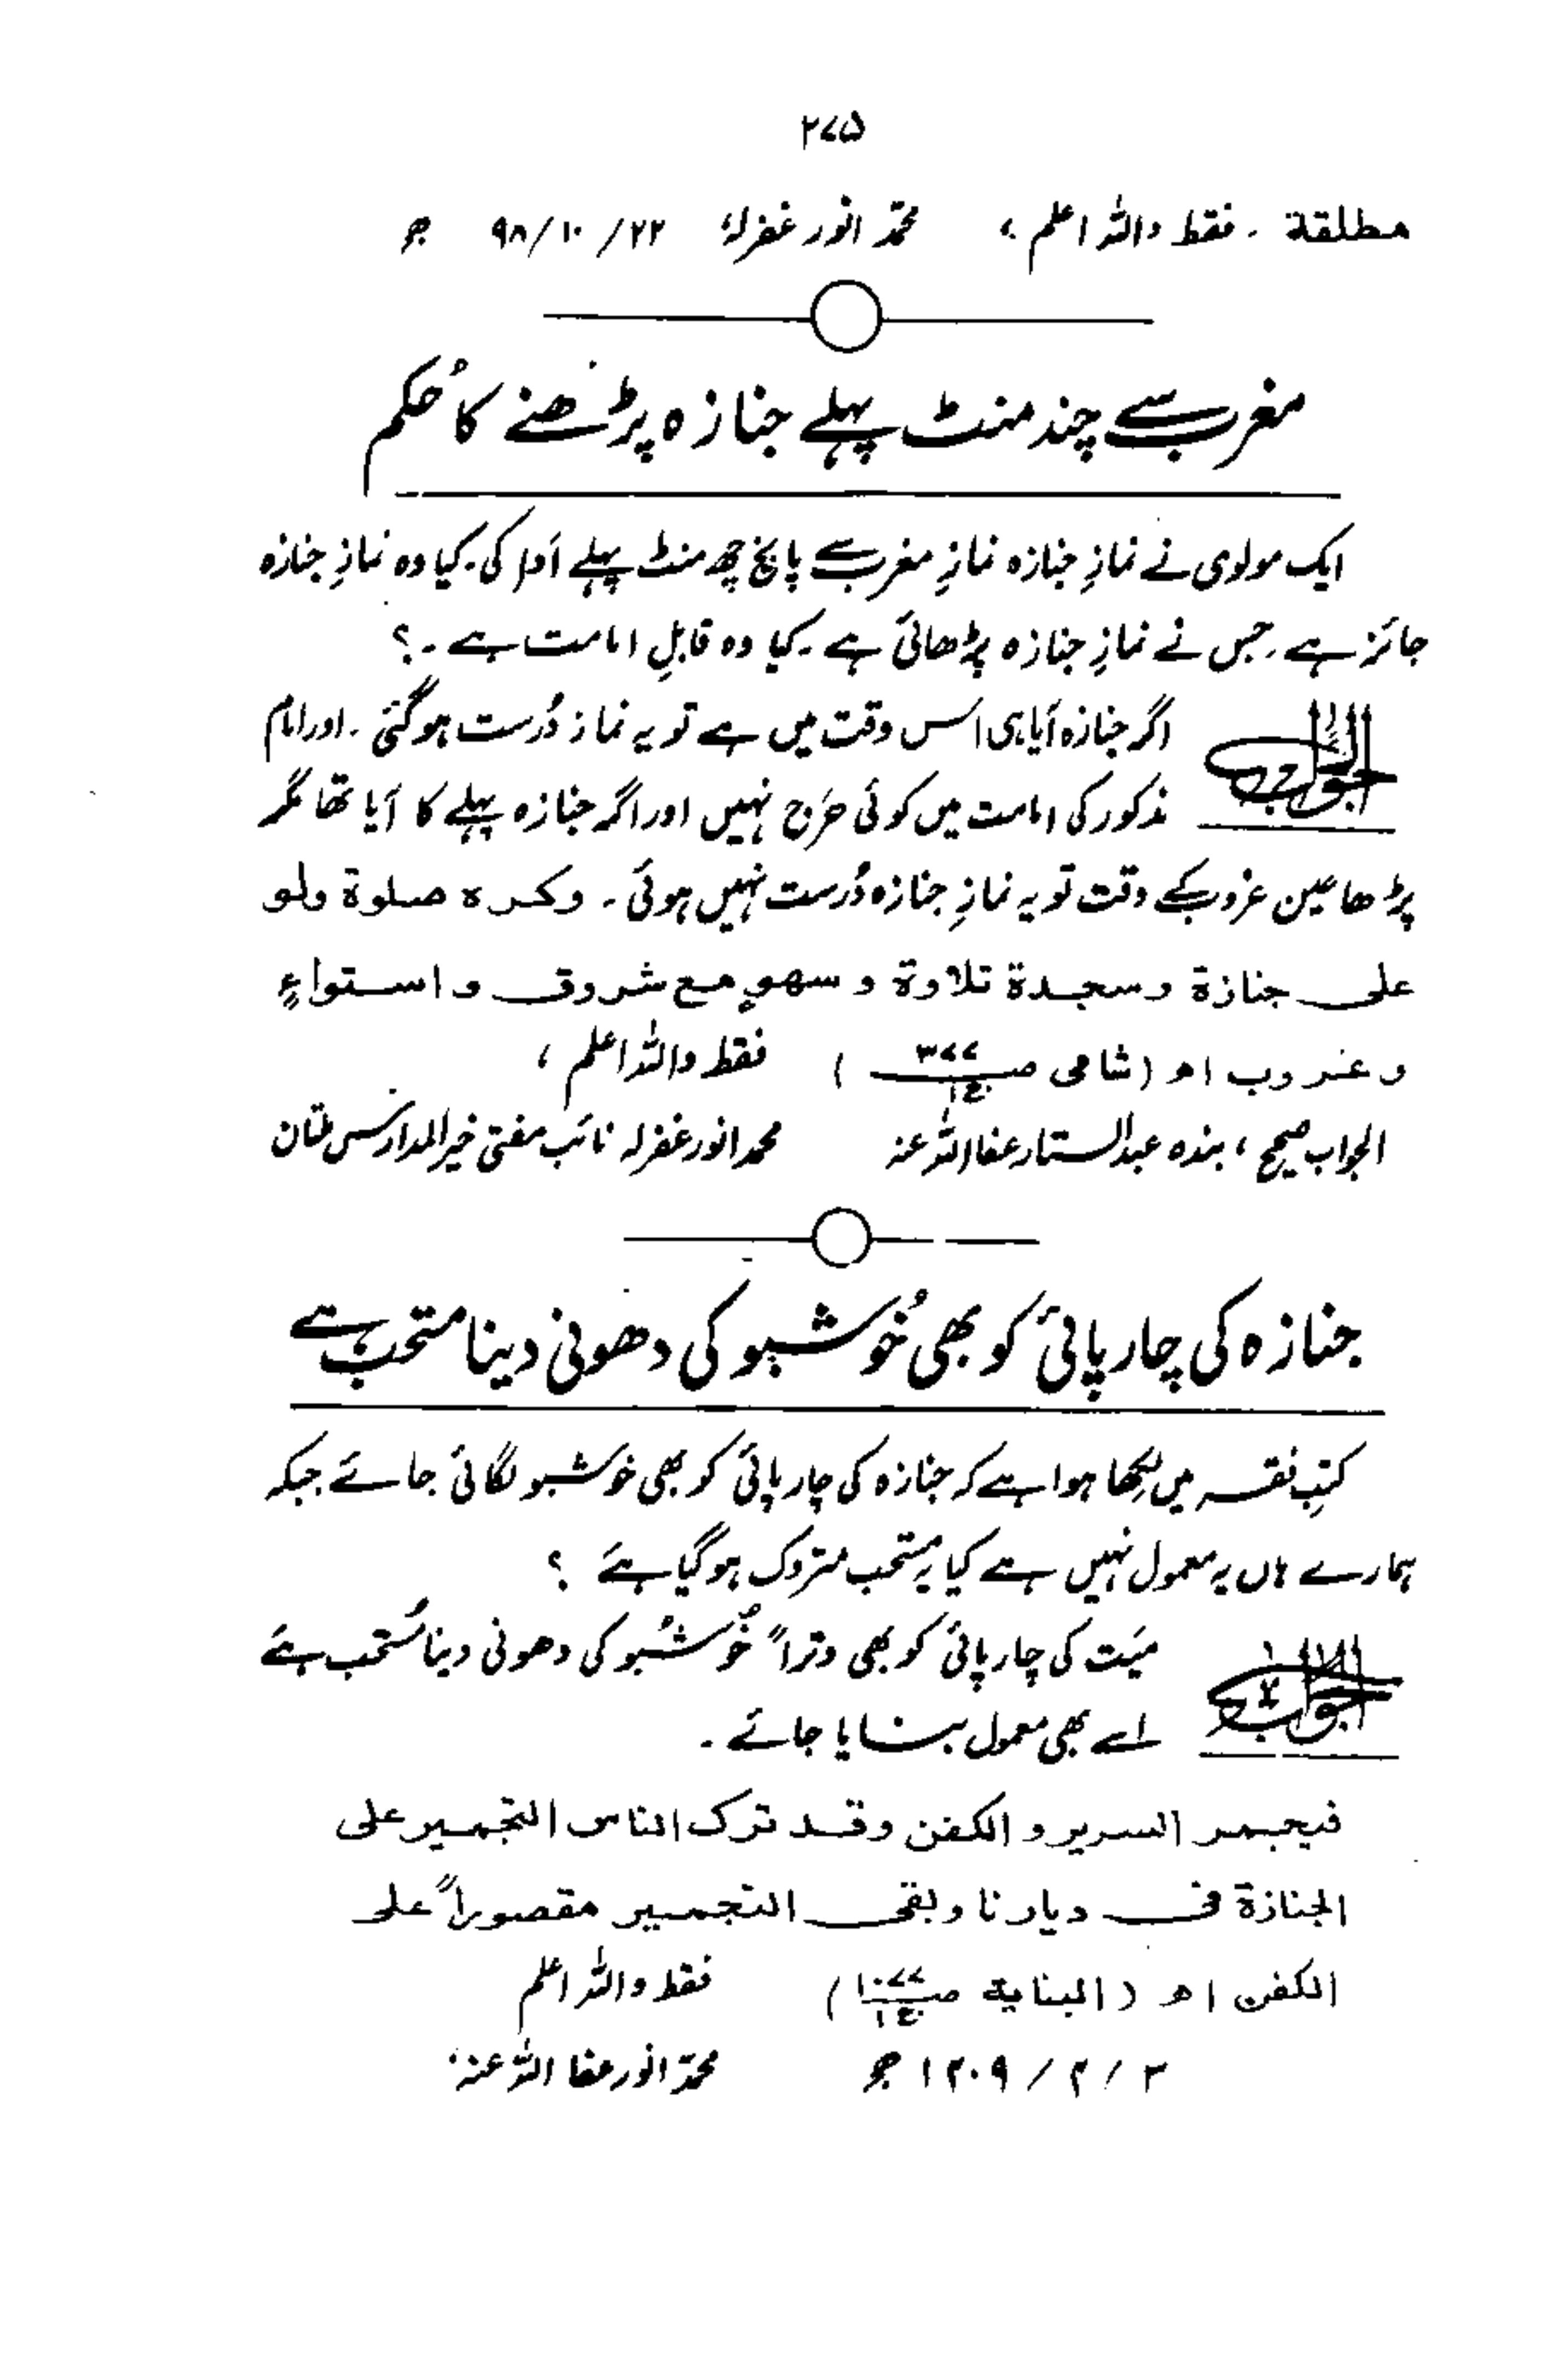 ۲۷۵
مطلقة ۔ فقط واللہ اعلم ، محمد انور غفرلہٗ ۲۲/۱۰/۹۸ ھ
مغرب سے چند منٹ پہلے جنازہ پڑھنے کا حُکم
ایک مولوی نے نمازِ جنازہ نمازِ مغرب سے پانچ چھ منٹ پہلے ادا کی ۔ کیا وہ نمازِ جنازہ
جائز ہے ۔ جس نے نمازِ جنازہ پڑھائی ہے ۔ کیا وہ قابلِ امامت ہے ۔ ؟
الجواب اگر جنازہ آیا ہی اس وقت میں ہے تو یہ نماز دُرست ہو گئی ۔ اور امام
مذکور کی امامت میں کوئی حَرج نہیں اور اگر جنازہ پہلے کا آیا تھا مگر
پڑھا عین غروب کے وقت تو یہ نمازِ جنازہ دُرست نہیں ہوئی ۔ وکره صلوة ولو
على جنازة وسجدة تلاوة وسهوٍ مع شروق واستواءٍ
وغروب اھ (شامی صـ ۳۷۷ ج ۱) فقط واللہ اعلم ،
الجواب صحیح ، بندہ عبد الستار عفا اللہ عنہ محمد انور غفرلہ نائب مفتی خیر المدارس ملتان
جنازہ کی چارپائی کو بھی خُوشبو کی دھونی دینا مستحب ہے
کتبِ فقہ میں لکھا ہوا ہے کہ جنازہ کی چارپائی کو بھی خوشبو لگائی جائے جبکہ
ہمارے ہاں یہ معمول نہیں ہے کیا یہ مستحب متروک ہو گیا ہے ؟
الجواب میّت کی چارپائی کو بھی وتراً خُوشبُو کی دھونی دینا مُستحب ہے
اسے بھی معمول بنایا جائے ۔
فيجمر السرير والكفن وقد ترك الناس التجمير على
الجنازة فى ديارنا وبقى التجمير مقصوراً على
الكفن اھ (البناية صـ ۱۰۷۷ ج ۱) فقط واللہ اعلم
۳ / ۲ / ۱۴۰۹ ھ محمّد انور عفا اللہ عنہ